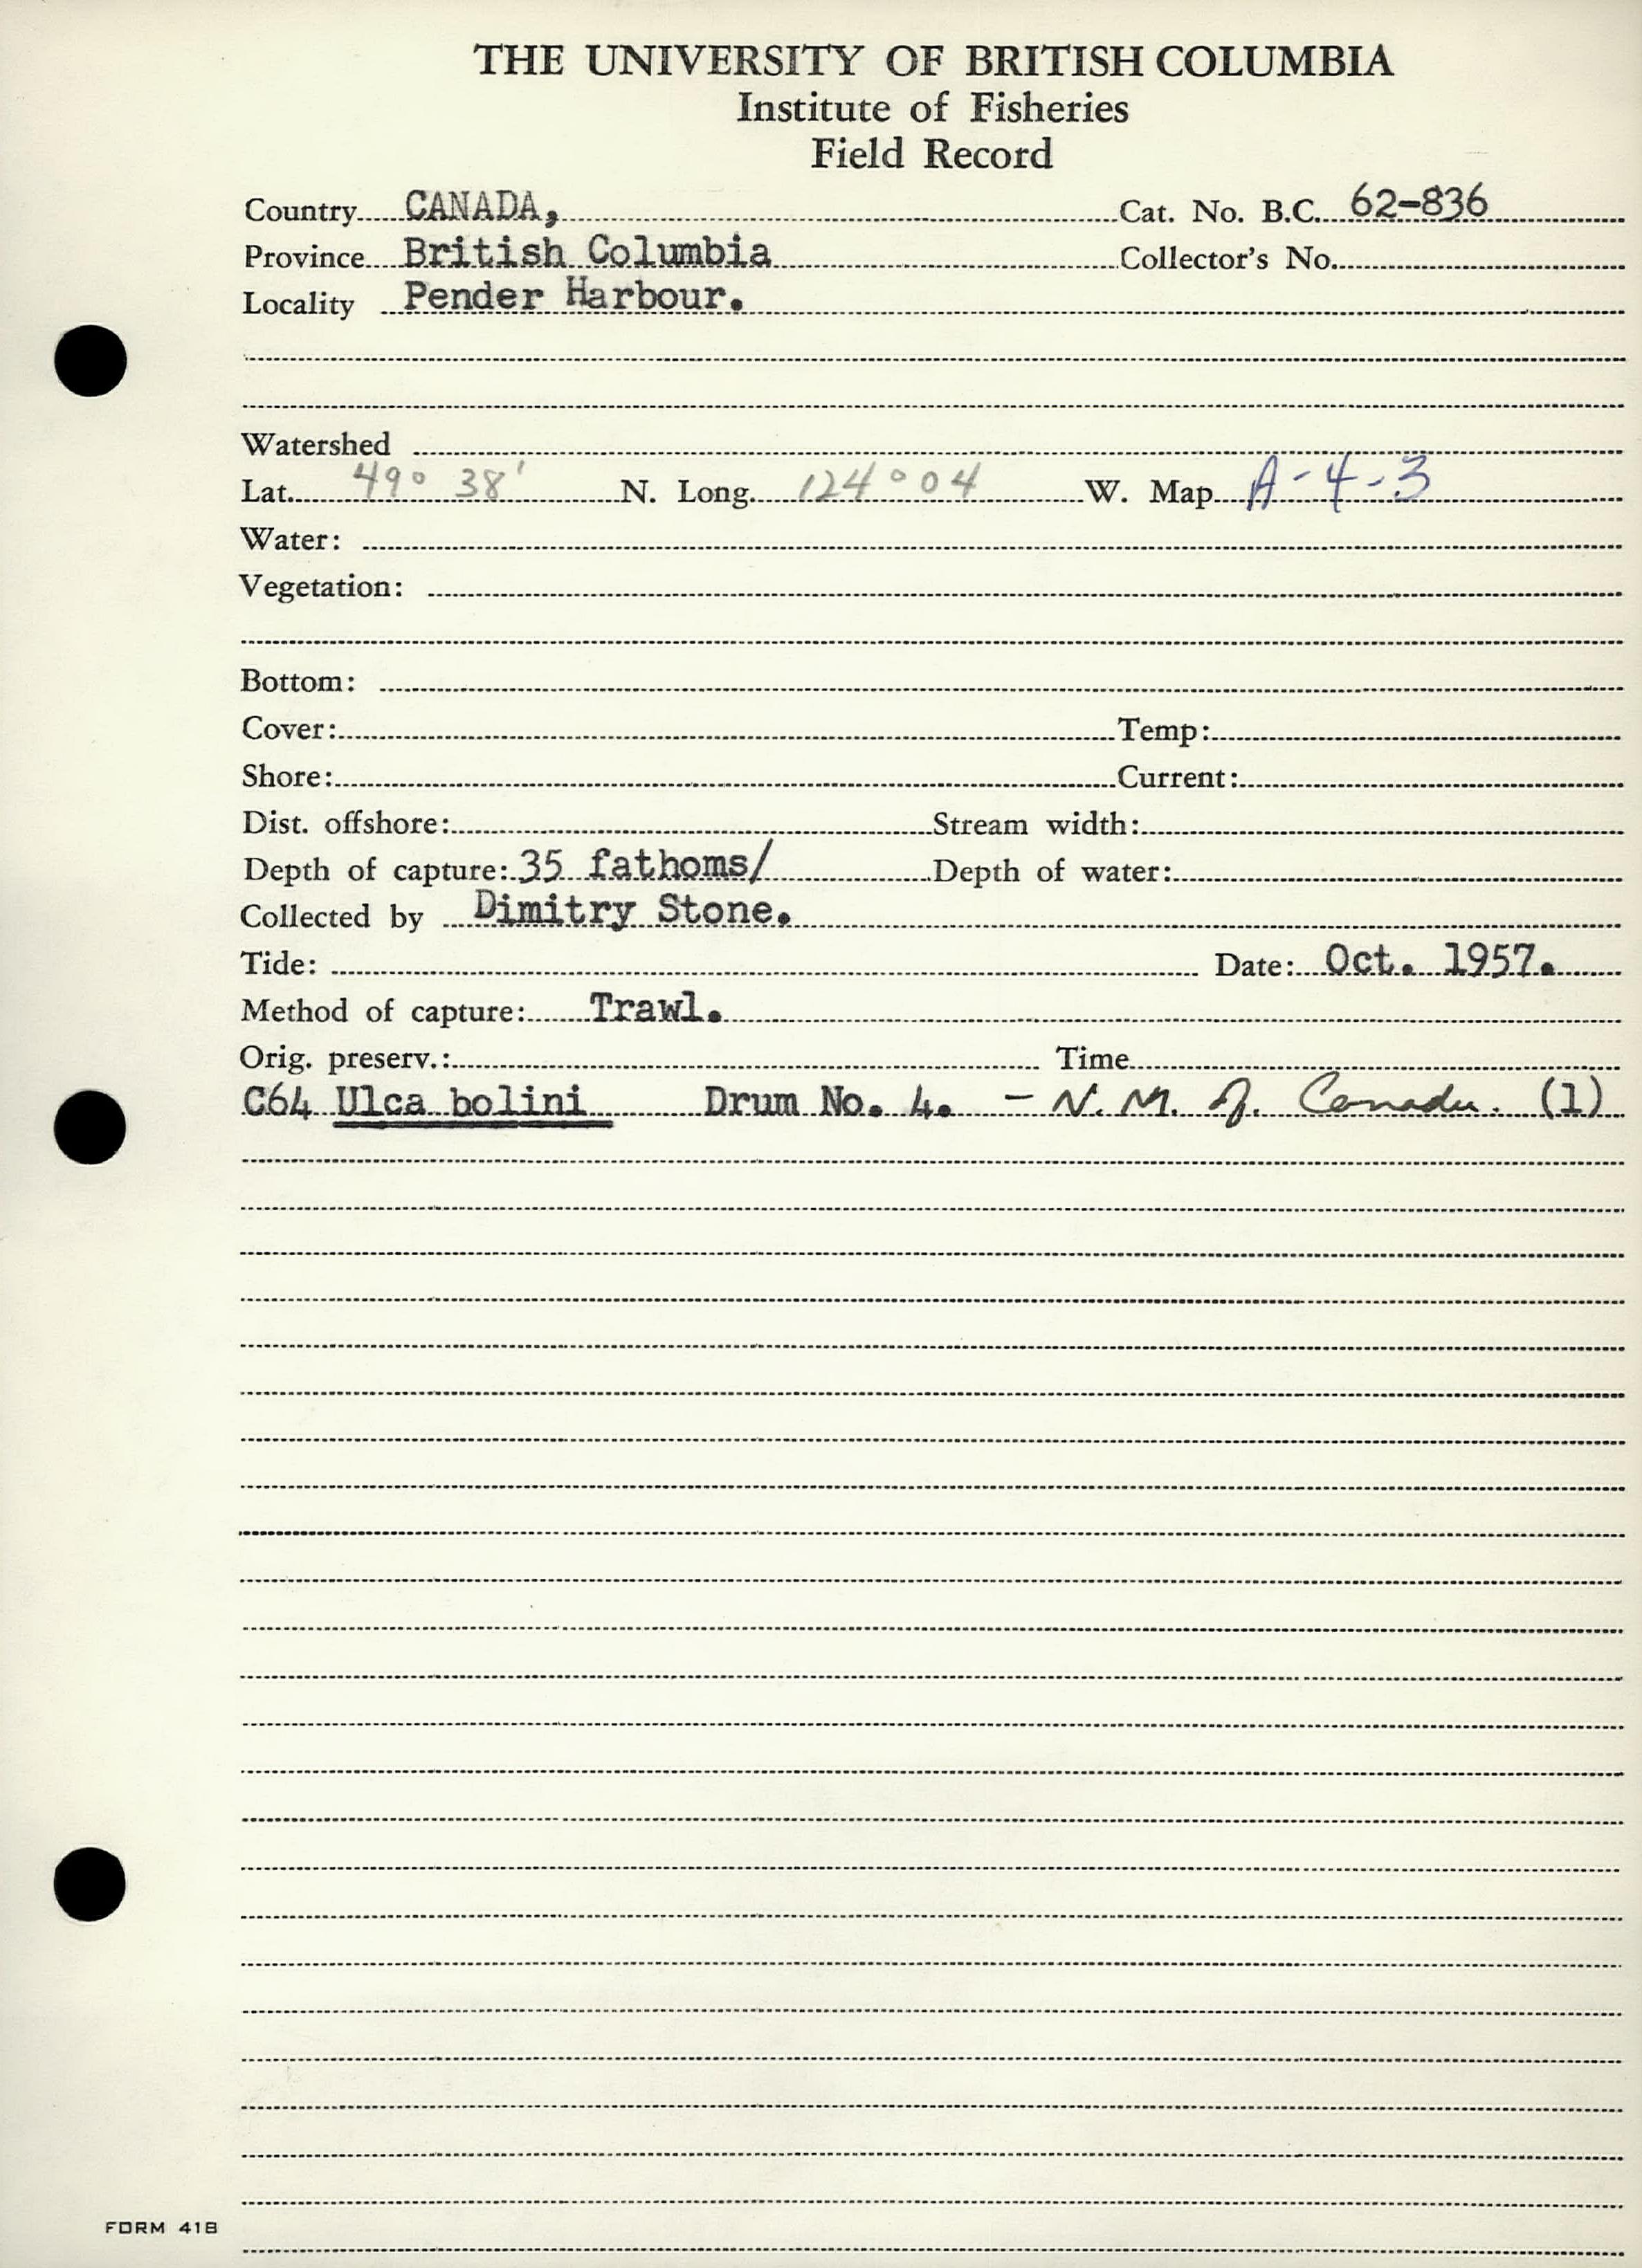 THE UNIVERSITY OF BRITISH COLUMBIA
Institute of Fisheries
Field Record
Country CANADA, Cat. No. B.C. 62-836
Province British Columbia Collector's No.
Locality Pender Harbour.
Watershed
Lat. 49° 38' N. Long. 124° 04 W. Map A-4-3
Water:
Vegetation:
Bottom:
Cover: Temp:
Shore: Current:
Dist. offshore: Stream width:
Depth of capture: 35 fathoms/ Depth of water:
Collected by Dimitry Stone.
Tide: Date: Oct. 1957.
Method of capture: Trawl.
Orig. preserv.: Time
C64 Ulca bolini Drum No. 4. - N. M. of. Canada. (1)
FORM 41B